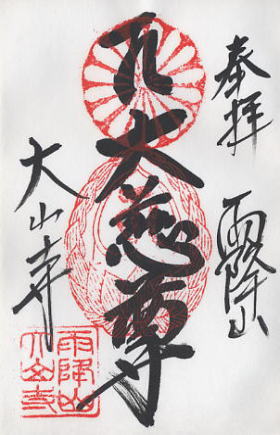 奉拝
雨降山
大慈尊
大山寺
雨降山
大山寺